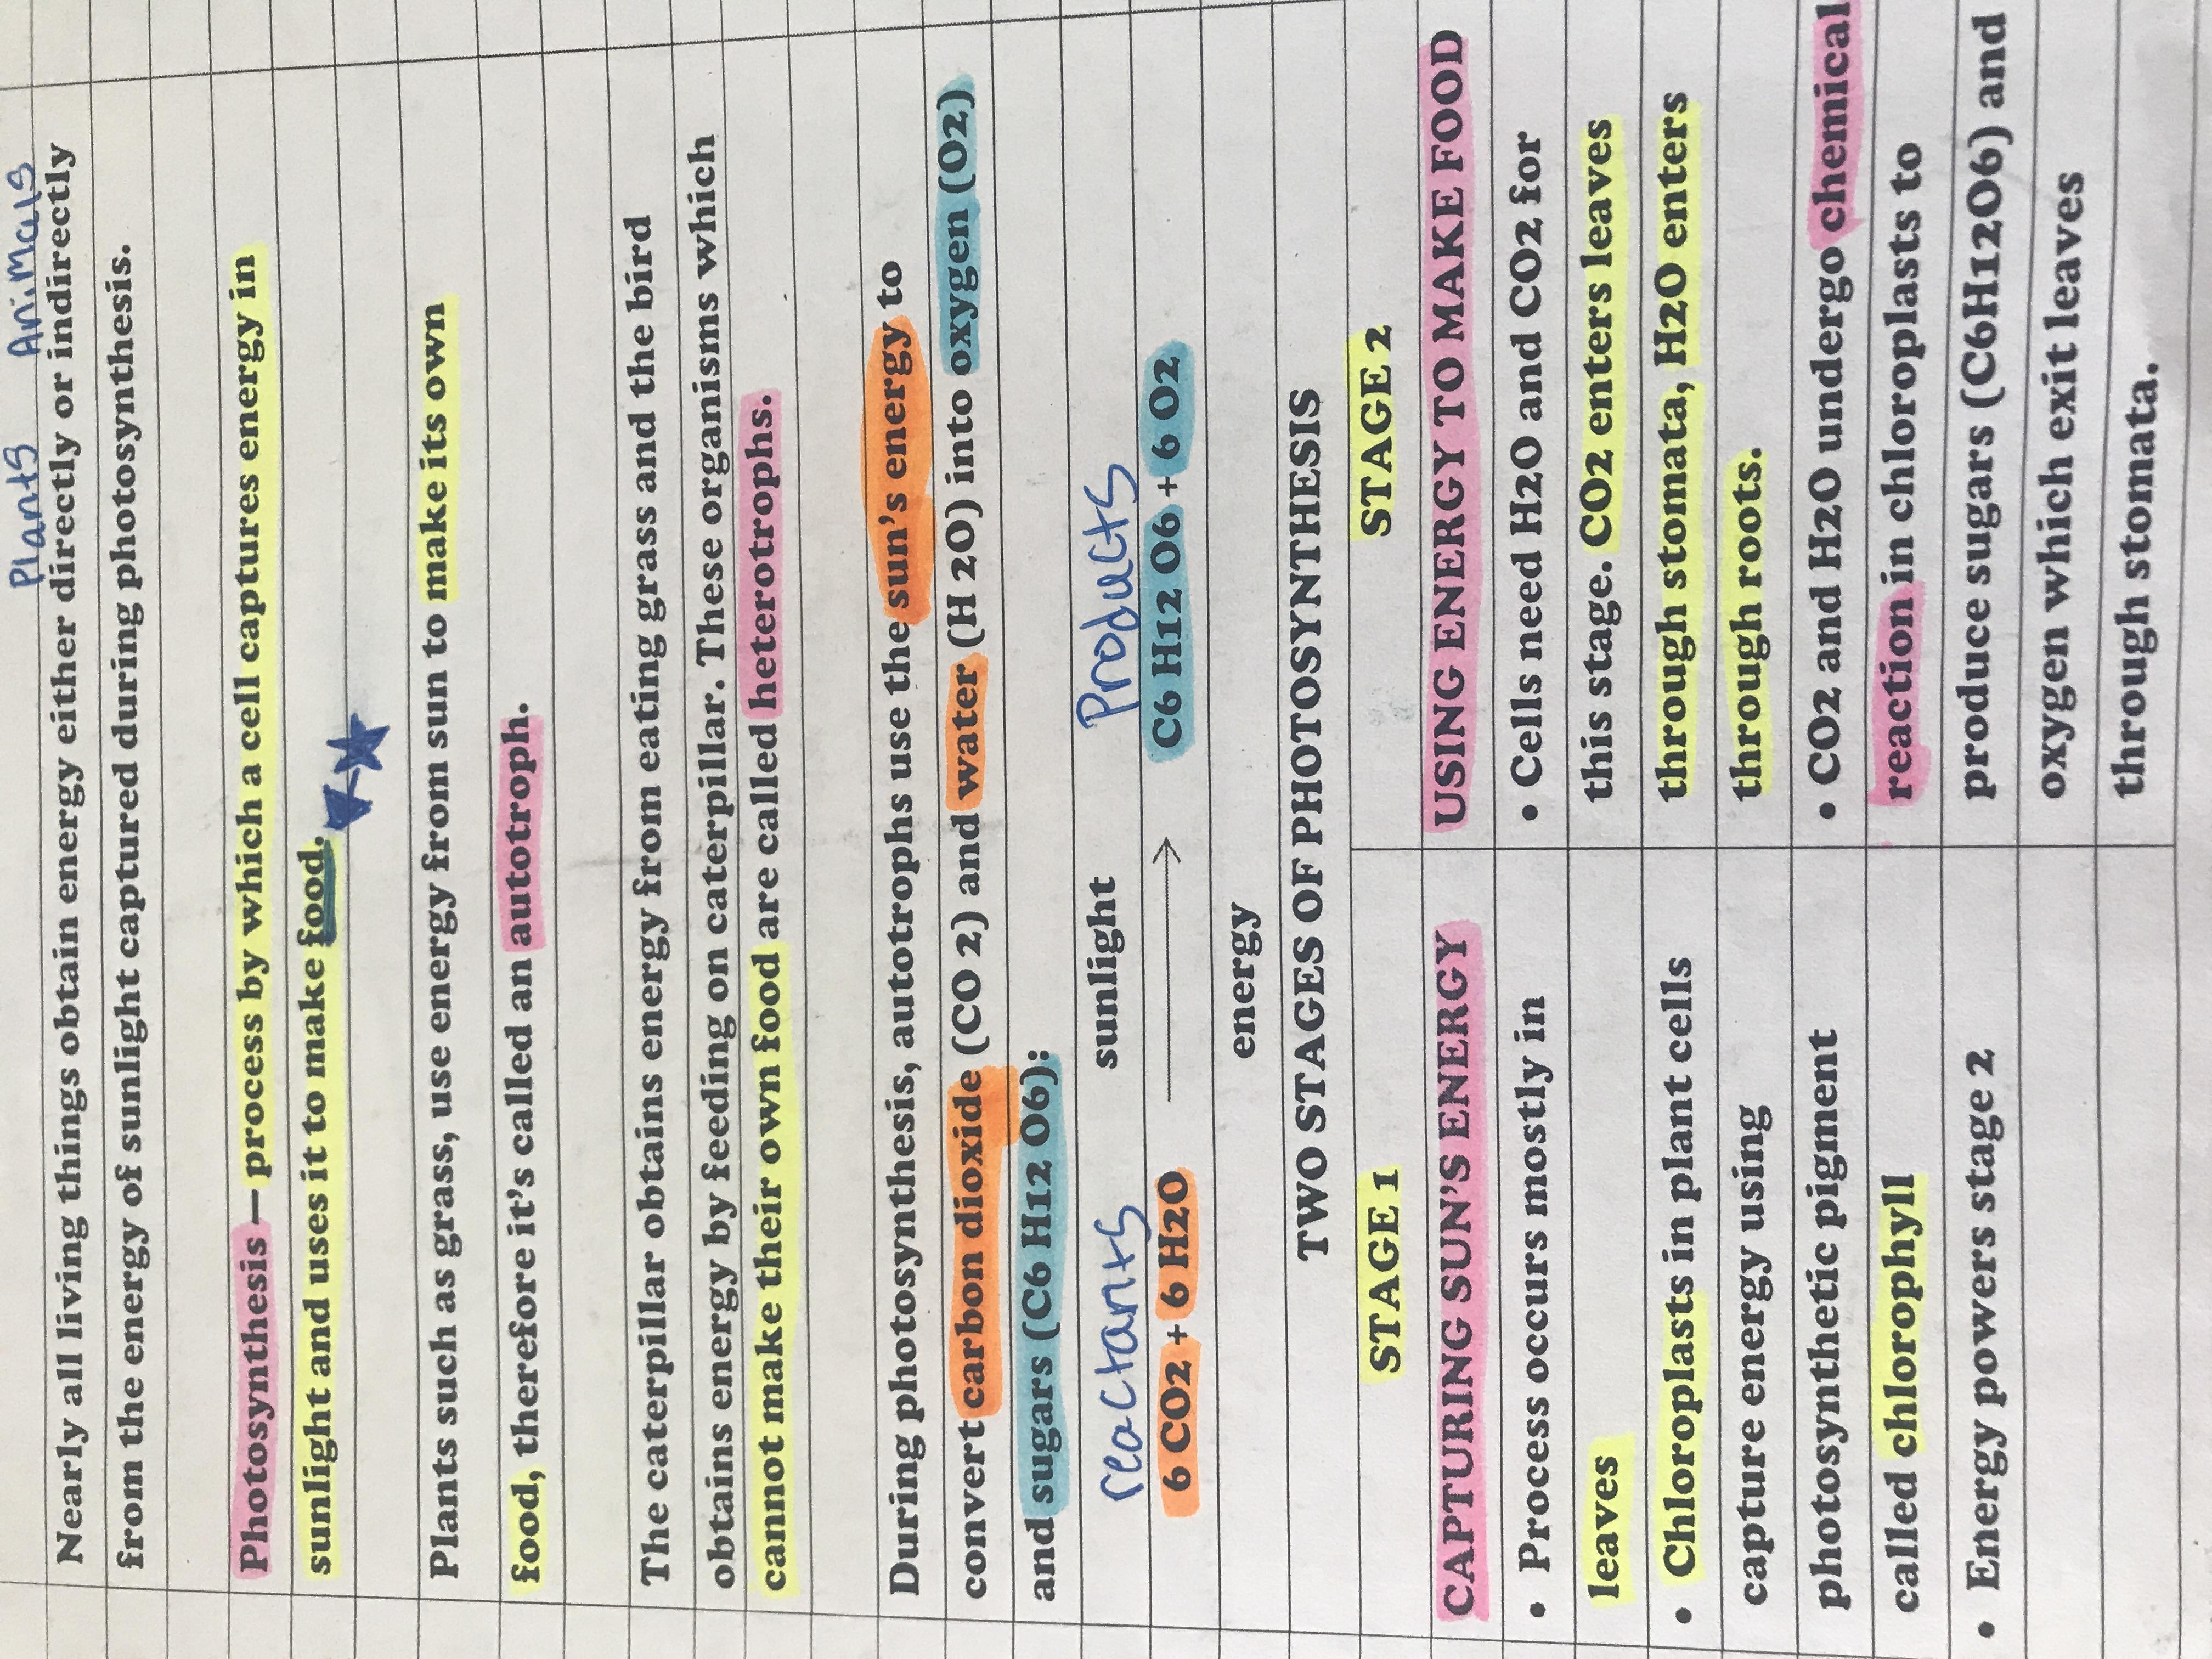 Plants Animals
Nearly all living things obtain energy either directly or indirectly
from the energy of sunlight captured during photosynthesis.
Photosynthesis – process by which a cell captures energy in
sunlight and uses it to make food.
Plants such as grass, use energy from sun to make its own
food, therefore it's called an autotroph.
The caterpillar obtains energy from eating grass and the bird
obtains energy by feeding on caterpillar. These organisms which
cannot make their own food are called heterotrophs.
During photosynthesis, autotrophs use the sun's energy to
convert carbon dioxide (CO 2) and water (H 2O) into oxygen (O2)
and sugars (C6 H12 O6):
reactants sunlight Products
6 CO2 + 6 H2O → C6 H12 O6 + 6 O2
energy
TWO STAGES OF PHOTOSYNTHESIS
STAGE 1
CAPTURING SUN'S ENERGY
• Process occurs mostly in
leaves
• Chloroplasts in plant cells
capture energy using
photosynthetic pigment
called chlorophyll
• Energy powers stage 2
STAGE 2
USING ENERGY TO MAKE FOOD
• Cells need H2O and CO2 for
this stage. CO2 enters leaves
through stomata, H2O enters
through roots.
• CO2 and H2O undergo chemical
reaction in chloroplasts to
produce sugars (C6H12O6) and
oxygen which exit leaves
through stomata.